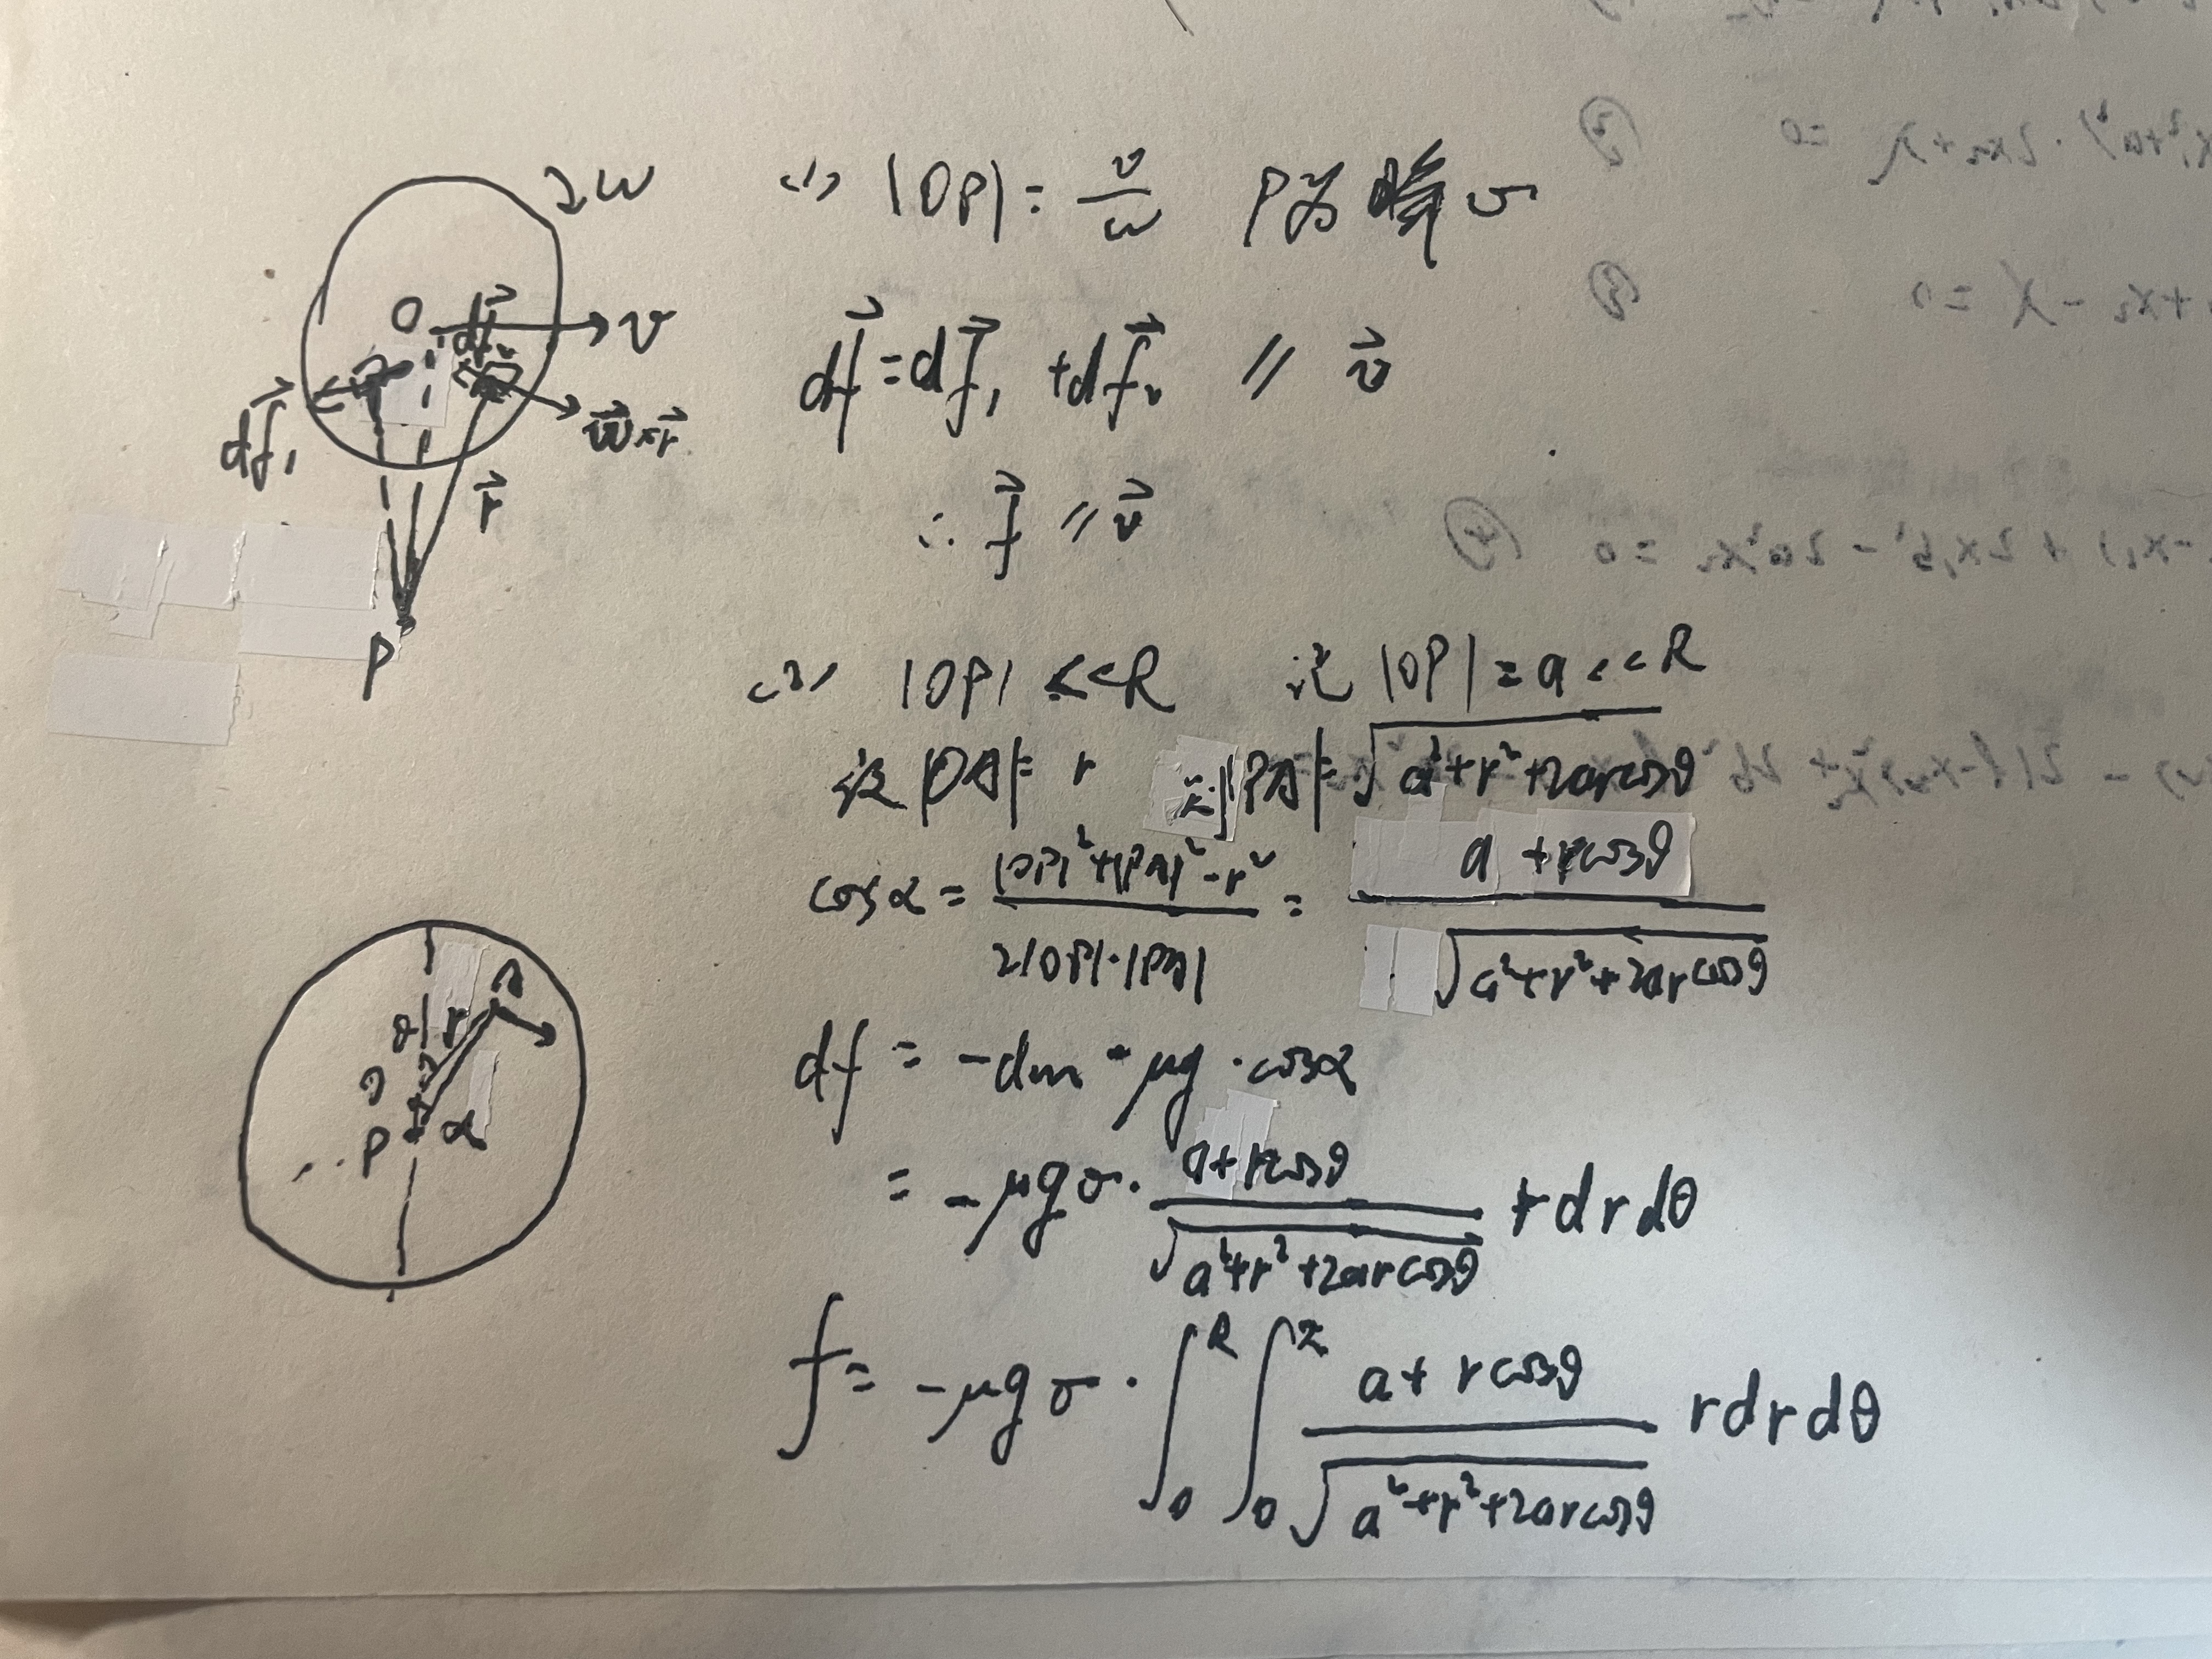 2ω
(1) |OP| = v/ω P为瞬心
O
df₂
v
df⃗ = df⃗₁ + df⃗₂ // v⃗
df⃗₁
ω⃗×r⃗
r⃗
∴ f⃗ // v⃗
P
(2) |OP| << R 记 |OP| = a << R
设 |OA| = r 则 |PA| = √(a²+r²+2arcosθ)
cosα = (|OP|²+|PA|²-r²)/(2|OP|·|PA|) = (a+rcosθ)/√(a²+r²+2arcosθ)
A
θ r
O
P α
df = -dm·μg·cosα
= -μgσ·(a+rcosθ)/√(a²+r²+2arcosθ) rdrdθ
f = -μgσ·∫₀ᴿ∫₀ (a+rcosθ)/√(a²+r²+2arcosθ) rdrdθ